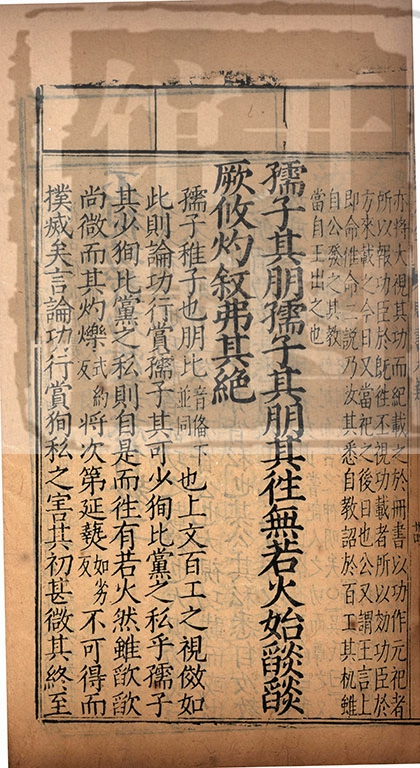 亦將大視其功而紀載之於冊書以功作元祀者
所以報功臣於既往不視功載者所以効功臣於
方來載之今日又當祀之後日也公又謂王言上
即命惟命二說乃汝其悉自教詔於百工其机雖
自公發之其教
當自王出之也
孺子其朋孺子其朋其往無若火始燄燄
厥攸灼敘弗其絕
孺子稚子也朋比音俻下並同也上文百工之視傚如
此則論功行賞孺子其可少徇比黨之私乎孺子
其少徇比黨之私則自是而往有若火然雖燄燄
尚微而其灼爍式約反將次第延爇如劣反不可得而
撲滅矣言論功行賞徇私之害其初甚微其終至